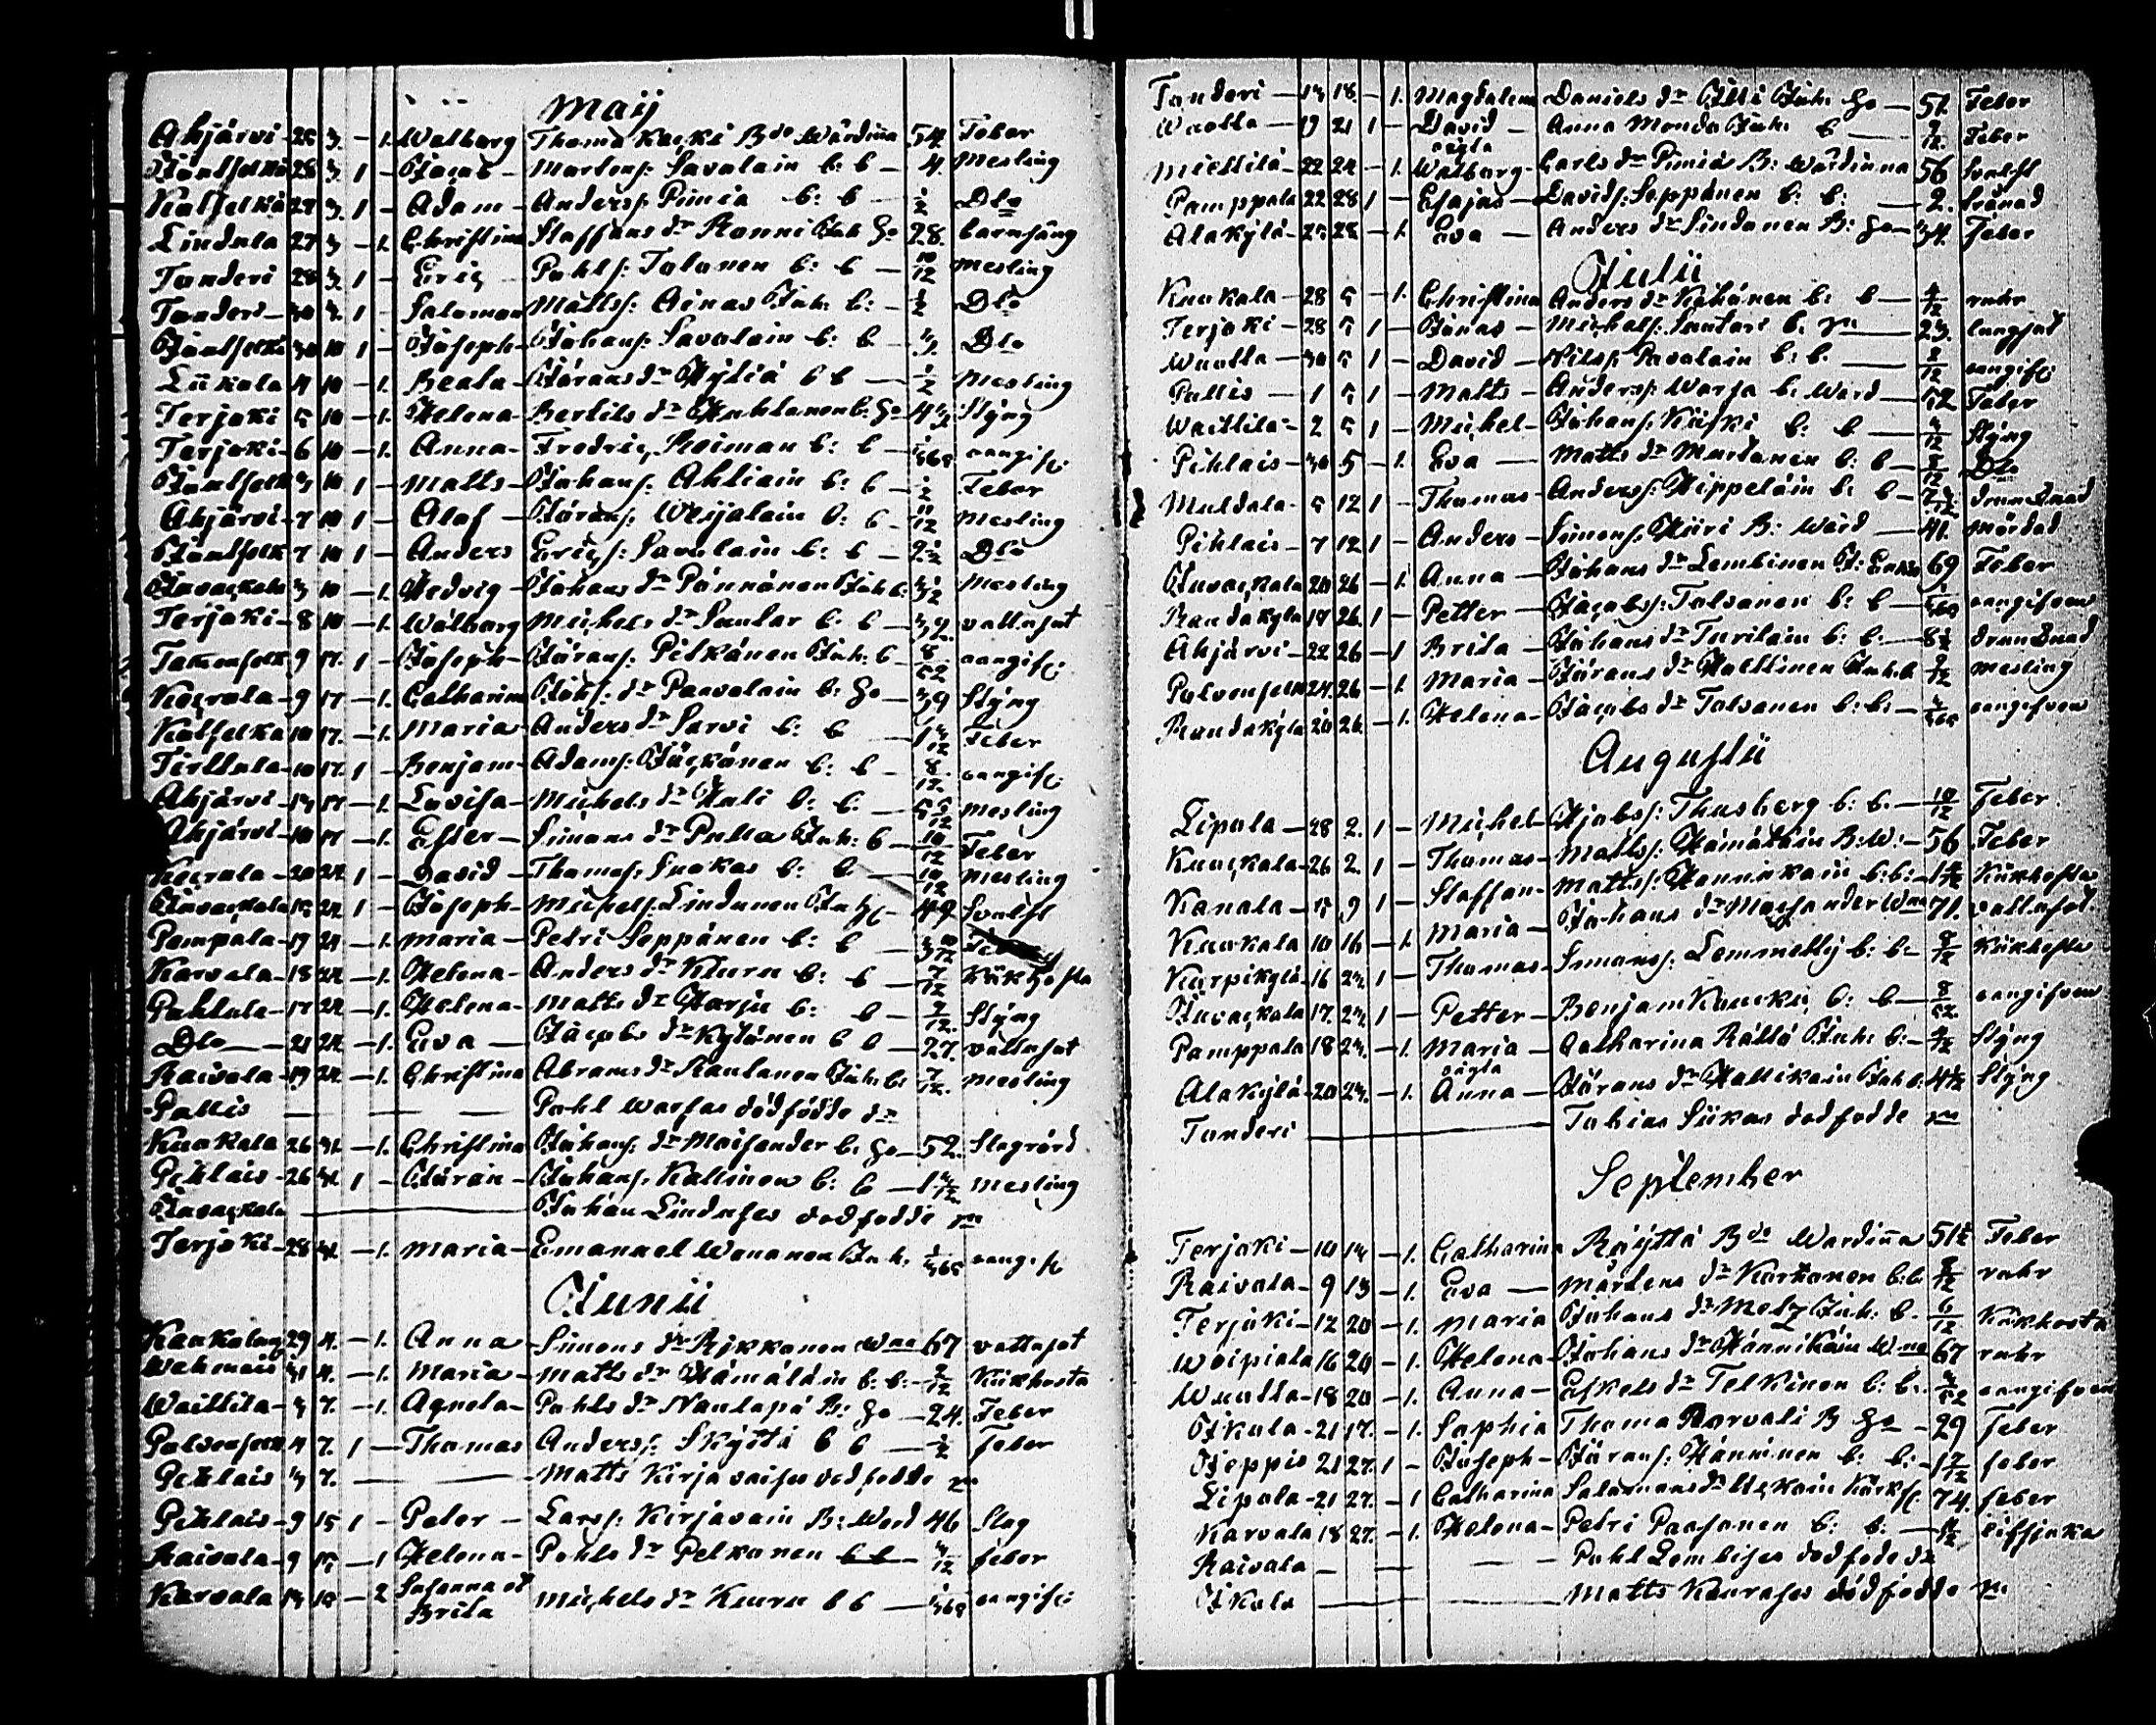 Maij
Ahjärvi - 25 3. - 1. Walborg Thoma Kaçki Bde Wärdinna 54. Feber
28 3. 1 - Jacob - Martens: Savalain b: b - 4. Mesling
Kälfelkä 29 3. 1 - Adam - Anders: Pimiä b: b - 1/2 Dlo
Lindula 27 3 - 1. Christina Staffans dr Ronni Inh. Ho 28. barnsäng
Tanderi 28 3. 1 - Eric Pahls: Talanen b: b - 10/12 Mesling
Tanderi - 30 3. 1 - Salomon Matts: Ainas Inh: b: - 1/2 Dlo
30 10 1 - Joseph - Johans: Savolain b: b - Dlo
Liikala 4 10 - 1. Beata - Görans dr Hyliä b b - 1/2 Mesling
Terjoki 5 10 - 1. Helena - Bertils dr b: Ho Stÿng
Terjoki - 6 10 - 1. Anna - Fredric Roiman b: b - 1/365 oangifv:
10 1 - Matts - Johans: Ahtiain b: b - 1/2 Feber
Ahjärvi - 7 10 1 - Olof - Görans: Weijalain b: b - 11/12 Mesling
7 10 1 - Anders Erics: Savolain b: b - 2 1/2 Dlo
Juvackala 3 10 - 1. Hedvig - Johans dr Pännänen Inh b: Mesling
Terjoki - 8 10 - 1. Walborg Michels dr Suntar b: b - 32. vattusot
9 17. 1 - Joseph - Görans: Pitkänen Inh: b 8/52 oangifv:
Kocrala - 9 17 - 1. Catharina Johs: dr Paavolain b: Ho - 39 Stÿng
Kälfelkä 10 17. - 1. Maria - Anders dr Sarvi b: b - Feber
Tirttula - 10 17. 1 - Benjam - Adams: Jäckänen b: b - 8/12. oangifv:
Ahjärvi - 14 17 - 1. Lovisa - Michels dr Huli b: b: - Mesling
Ahjärvi - 10 17 - 1. Ester - Simons dr Pulla Inh: b - 10/12 Feber
Kocrala - 20 24 1 - David - Thomas: Suokas b: b - 10/12 Mesling
Juvackala 24 1 - Joseph - Michels: Lindunen Inh 49
Pampala - 19 24 - 1. Maria - Petri Seppänen b: b -
Karvala - 18 24 - 1. Helena - Anders dr Kiuru b: b - 7/12 Kikhosta
Puhtula - 17 24 - 1. Helena - Matts dr Harju b: b - 7/12. Stÿng
Dlo - 21 24 - 1. Eva - Jacobs dr Kylänen b b - 27. vattusot
Raivola - 19 24 - 1. Christina Abrams dr Rautanen Inh: b: 7/12. Mesling
Pallis - Pahl Warsas dödfödde dr
Kuokala 26 31. - 1. Christina Johans: dr Maisander b: Ho - 52. Slagrörd
Pihlais - 26 31 1 - Göran - Johans: Kallinen b: b - Mesling
Juvackala - Johan Linduses dödfödde
Terjoki - 28 31. - 1. Maria - Emanuel Wananen Inh. 1/365 oangifv
Junii
Kaukolamp 29 4. - 1. Anna - Simons dr Rikkonen Wna 67 vattusot
Wehmais 31 4. - 1. Maria - Matts dr Hämäläin b: b: - 2/12 Kikhosta
Waittila - 3 7. - 1. Agneta - Pahls dr Naulapä B: Ho - 24. Feber
4 7. 1 - Thomas Anders: Skyttä b b - 1/2 feber
Pihlais 3 7. - Matts Kirjavaises dödfödde
Pihlais - 9 15 1 - Peter - Lars: Kirjavain B: Werd 46 Slag
Raivola - 9 15 - 1 Helena - Pahls dr Pelkonen b b - feber
Karvala 14 18 - 2 Susanna od Brita Michels dr Kiuru b b - 1/365 oangifv:
Tanderi - 14 18. - 1. Magdalena Daniels dr Olli Inh: Ho - 51. Feber
Wuotta - 19 21 1 - David - Anna Monda Inh: b - 9/12. Feber
Miettilä - 22 24 - 1. oägta Walborg - Carls dr Pimiä B: Wärdinna 56 svulst
Pamppala 22 28 1 - Esajas - Davids: Seppänen b: b: - 2. tränad
Alakylä - 25 28 - 1. Eva - Anders dr Lindanen B: Ho - 34. Feber
Julii
Kuokala - 28 5 - 1. Christina Anders dr Kähönen b: b - 4/12 ruhr
Terjoki - 28 5 1 - Jonas - Michels: Suntari b: - 23. lungsot
Wuotta - 30 5 1 - David - Nils: Pavolain b: b. - 2/12 oangifv:
Pallis - 1 5 1 - Matts - Anders: Warsa b: Werd - 52 Feber
Waittila - 2 5 1 - Michel - Johans: Kiiski b: b - Stÿng
Pihlais - 30 5 - 1. Eva - Matts dr Murtonen b: b - Dlo
Muldala - 5 12 1 - Thomas - Anders: Hippeläin b: b - drunknad
Pihlais - 7 12 1 - Anders - Simons: Hiiri B: Wärd - 41. Mördad
Juvackala 20 26 - 1. Anna - Johans dr Lembinen Enka 69 Feber
Randakyla 19 26. 1 - Petter - Jacobs: Talvanen b: b - 1/365 oangifven
Ahjärvi - 22 26 - 1 Brita - Johans dr Turilain b: b: - 8 1/2 drunknad
24. 26 - 1. Maria - Görans dr Halttinen Inh: b Mesling
Randakyla 20 26. - 1. Helena - Jacobs dr Talvanen b: b: - oangifven
Augustii
Lipola - 28 2. 1 - Michel - Thusberg b: b. - 10/12 feber
Kuackala - 26 2. 1 - Thomas - Matts: Hämäläin B: W: - 56 Feber
Kanala - 5 9 1 - Staffan - Matts: Hannikain b: b: - Kikhosta
Kuokala 10 16 - 1. Maria - Johans dr Maisander Wna 71. vattusot
Kurpikylä - 16 23. 1 - Thomas - Simons: Lemmetty b: b - 8/12 Kikhosta
Juvackala 17. 23. 1 - Petter - Benjam Kaucki b: b - 8/52. oangifven
Pamppala 18 23. - 1. Maria - Catharina Rättö Inh: b: - Stÿng
Alakylä - 20 23. - 1. oägta Anna - Görans dr Hallikain Inh b: Stÿng
Tanderi - Tobias Siikas dödfödde
September
Terjoki - 10 13 - 1. Catharina Räyttä Bde Wärdinna 51 1/2 Feber
Raivola - 9 13 - 1. Eva - Mårtens dr Karhonen b: b. ruhr
Terjoki - 12 20 - 1. Maria Johans dr Metz Inh: b. 6/12 Kikhosta
Woipiala 16 20 - 1. Helena - Johans dr Hännikäin Wna 67 ruhr
Wuotta - 18 20 - 1. Anna - Eskels dr Telkinen b: b. oangifven
Ikola - 21 17. - 1. Sophia Thoma Rorvali B Ho - 29 feber
Jeppis 21 27. 1 - Joseph - Görans: Hänninen b: b: - feber
Lipola - 21 27. - 1 Catharina Salamans dr 74. feber
Karvala 18 27. - 1. Helena - Petri Paasonen b: b: - Riksjuka
Raivola - Pahl Lembises dödföde dr
Ikola - Matts Kauroses dödfödde